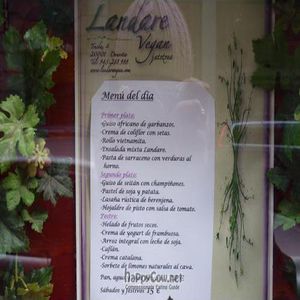 Landare
Vegan
Jatetxea
Menú del día
Primer plato:
-Guiso africano de garbanzos.
-Crema de coliflor con setas.
-Rollo vietnamita.
-Ensalada mixta Landare.
-Pasta de sarraceno con verduras al
horno.
Segundo plato:
-Guiso de seitán con champiñones.
-Pastel de soja y patata.
-Lasaña rústica de berenjena.
-Hojaldre de pisto con salsa de tomate.
Postre:
-Helado de frutos secos.
-Crema de yogurt de frambuesa.
-Arroz integral con leche de soja.
-Cuflán.
-Crema catalana.
-Sorbete de limones naturales al cava.
Pan, agua
Sábados y festivos 15 €
HappyCow.net
Compassionate Eating Guide